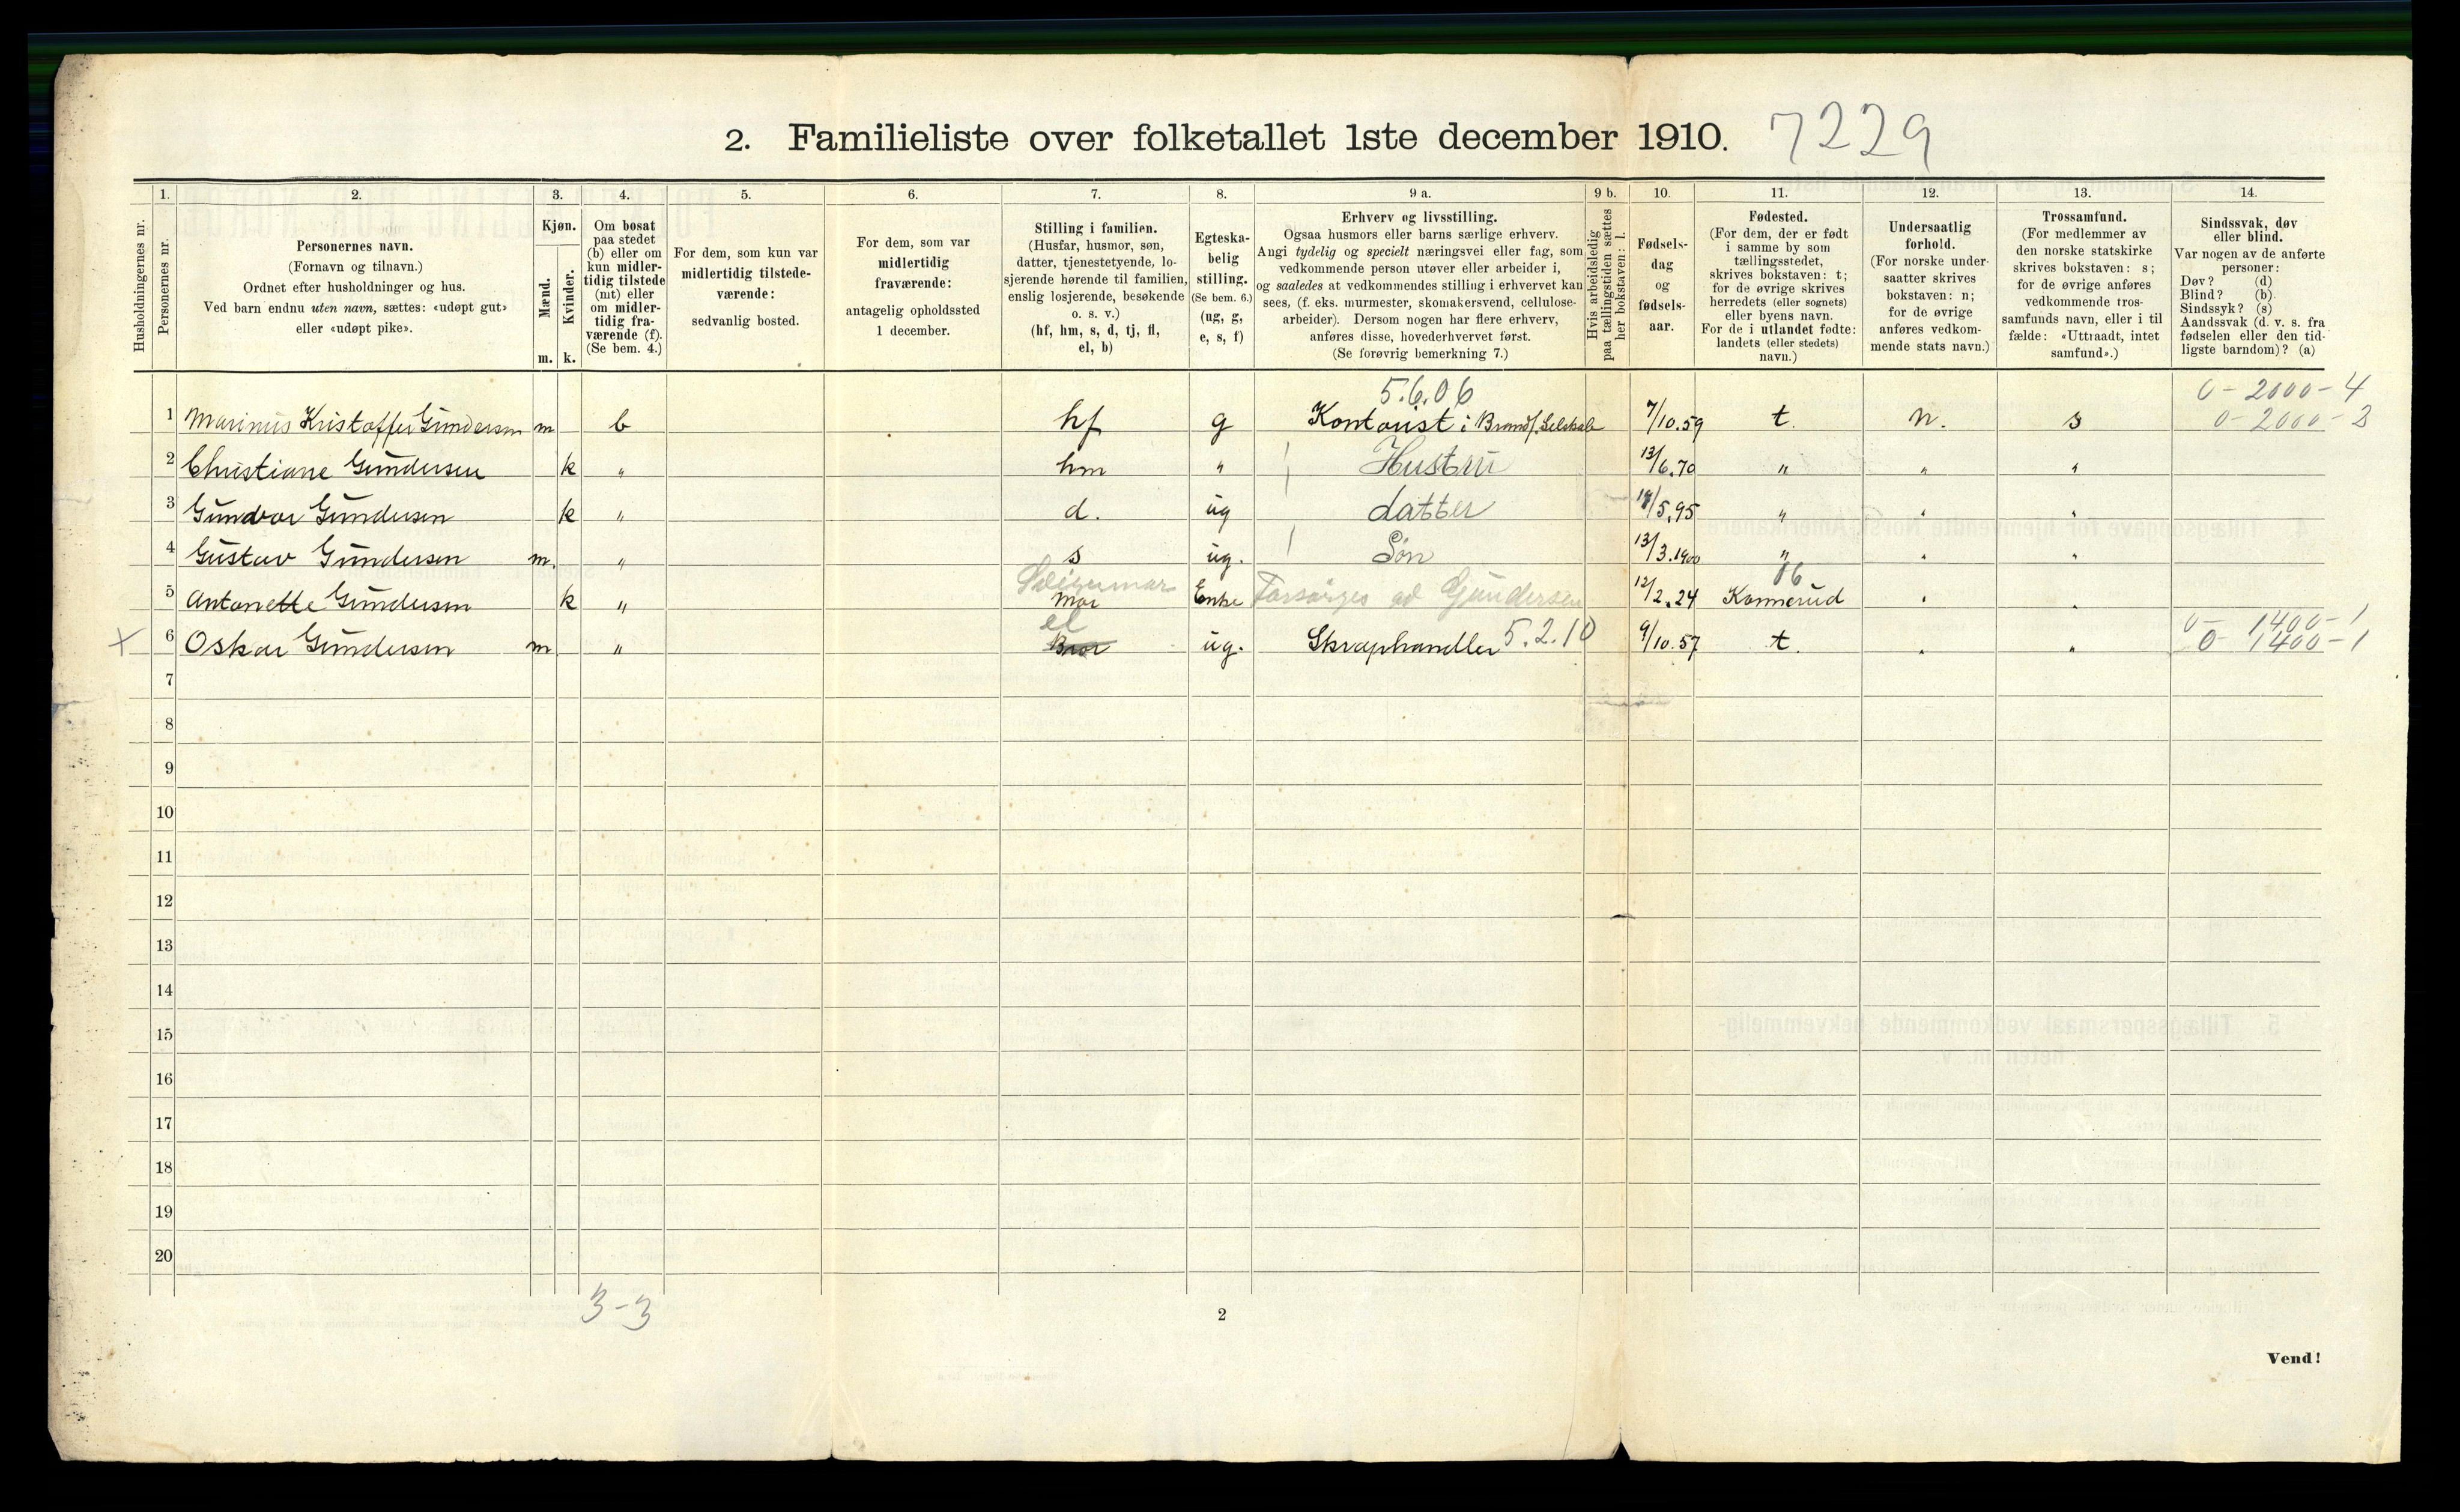 2. Familieliste over folketallet 1ste december 1910. 7229
1. 2. 3. 4. 5. 6. 7. 8. 9 a. 9 b. 10. 11. 12. 13. 14.
Husholdningernes nr.
Personernes nr.
Personernes navn.
(Fornavn og tilnavn.)
Ordnet efter husholdninger og hus.
Ved barn endnu uten navn, sættes: «udøpt gut»
eller «udøpt pike».
Kjøn.
Mænd.
m.
Kvinder.
k.
Om bosat
paa stedet
(b) eller om
kun midler-
tidig tilstede
(mt) eller
om midler-
tidig fra-
værende (f).
(Se bem. 4.)
For dem, som kun var
midlertidig tilstede-
værende:
sedvanlig bosted.
For dem, som var
midlertidig
fraværende:
antagelig opholdssted
1 december.
Stilling i familien.
(Husfar, husmor, søn,
datter, tjenestetyende, lo-
sjerende hørende til familien,
enslig losjerende, besøkende
o. s. v.)
(hf, hm, s, d, tj, fl,
el, b)
Egteska-
belig
stilling.
(Se bem. 6.)
(ug, g,
e, s, f)
Erhverv og livsstilling.
Ogsaa husmors eller barns særlige erhverv.
Angi tydelig og specielt næringsvei eller fag, som
vedkommende person utøver eller arbeider i,
og saaledes at vedkommendes stilling i erhvervet kan
sees, (f. eks. murmester, skomakersvend, cellulose-
arbeider). Dersom nogen har flere erhverv,
anføres disse, hovederhvervet først.
(Se forøvrig bemerkning 7.)
Hvis arbeidsledig
paa tællingstiden sættes
her bokstaven: l.
Fødsels-
dag
og
fødsels-
aar.
Fødested.
(For dem, der er født
i samme by som
tællingsstedet,
skrives bokstaven: t;
for de øvrige skrives
herredets (eller sognets)
eller byens navn.
For de i utlandet fødte:
landets (eller stedets)
navn.)
Undersaatlig
forhold.
(For norske under-
saatter skrives
bokstaven: n;
for de øvrige
anføres vedkom-
mende stats navn.)
Trossamfund.
(For medlemmer av
den norske statskirke
skrives bokstaven: s;
for de øvrige anføres
vedkommende tros-
samfunds navn, eller i til
fælde: «Uttraadt, intet
samfund».)
Sindssvak, døv
eller blind.
Var nogen av de anførte
personer:
Døv? (d)
Blind? (b)
Sindssyk? (s)
Aandssvak (d. v. s. fra
fødselen eller den tid-
ligste barndom)? (a)
5.6.06 0-2000-4
1 Marinius Kristoffer Gundersen m b hf g Kontorist i Brandf. Selskab 7/10.59 t. n. s 0-2000-3
2 Christiane Gundersen k " hm " Hustru 13/6.70 " " "
3 Gundvor Gundersen k " d. ug datter /5.95 " " "
4 Gustav Gundersen m. " s ug. Søn 13/3.1900 " " "
06
5 Antonette Gundersen k " Mor Enke Forsørges ad Gundersen 12/2.24 Konnerud " "
el 0-1400-1
x 6 Oskar Gundersen m " Bror ug. Skraphandler 5.2.10 9/10.57 t. " " 0-1400-1
7
8
9
10
11
12
13
14
15
16
17
18
19
20
3-3
2
Vend!